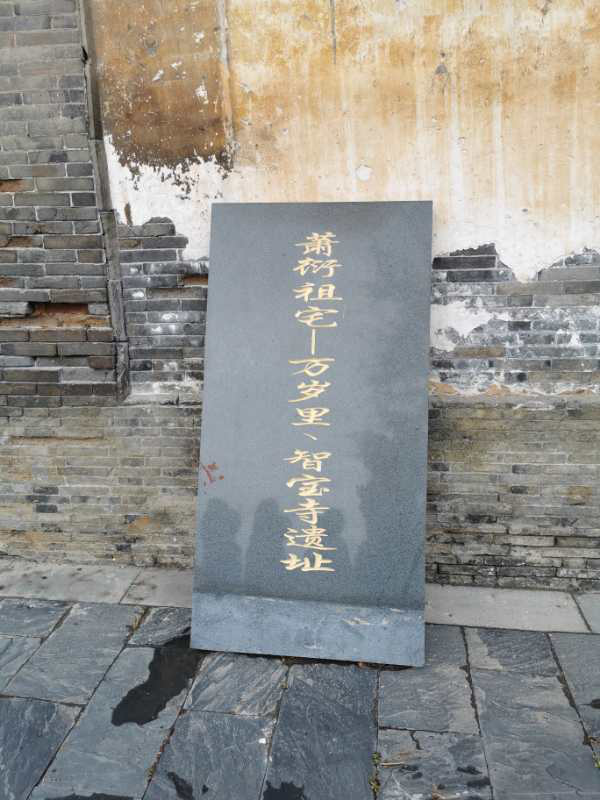 萧衍祖宅—万岁里、智宝寺遗址